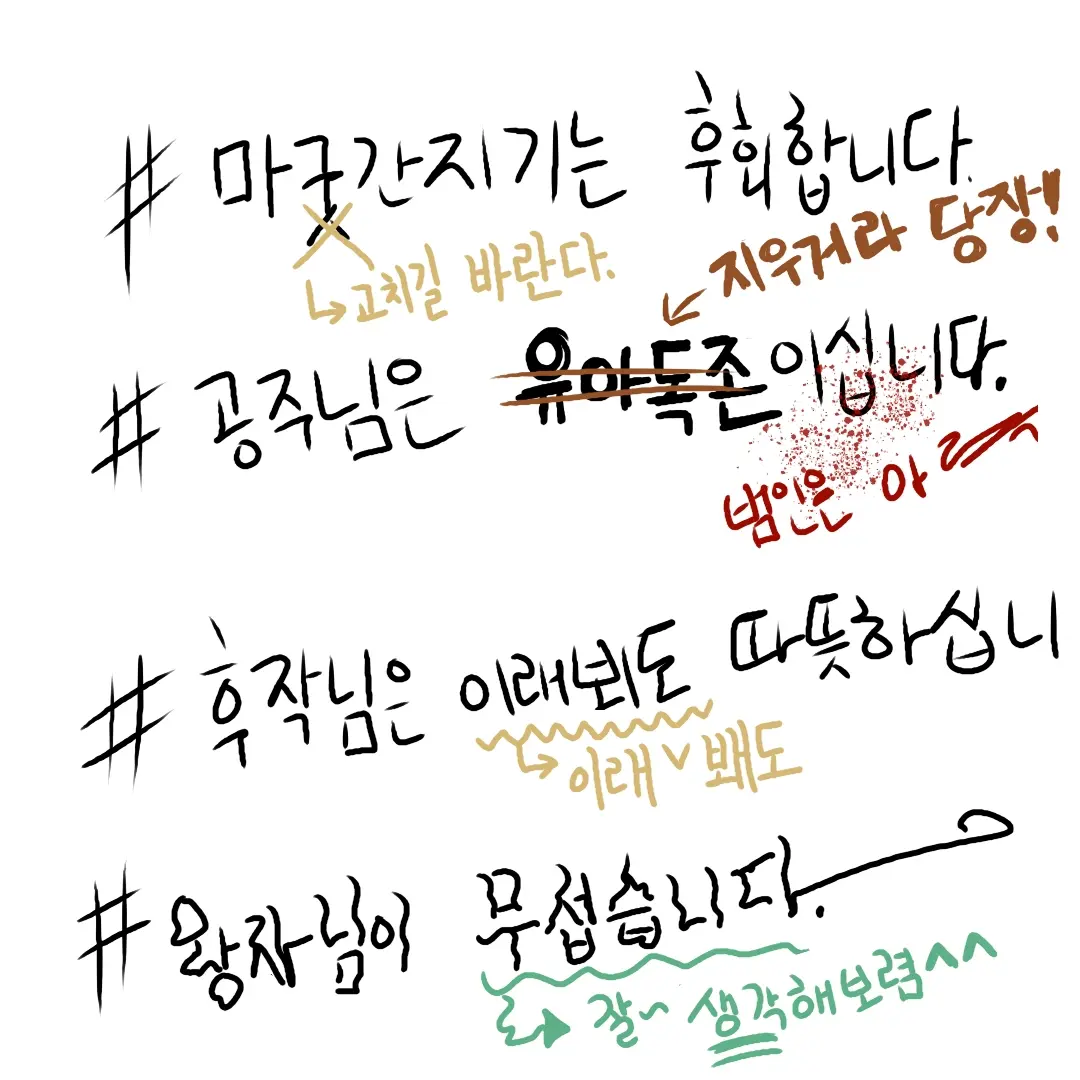 # 마굿간지기는 후회합니다.
↳고치길 바란다.
지우거라 당장!
# 공주님은 유아독존이십니다.
범인은 아
# 후작님은 이래뵈도 따뜻하십니
이래 ∨ 봬도
# 왕자님이 무섭습니다.
잘~ 생각해보렴^^